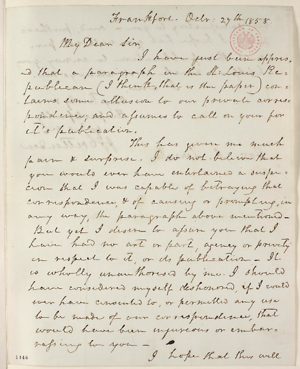 Frankfort. Octr. 27th 1858
My Dear Sir
I have just been appris-
ed that a paragraph in the St Louis Re-
publican (I think that is the paper) con-
tains some allusion to our private corres-
pondence, and assumes to call on you for
it's publication.
This has given me much
pain & surprise. I do not believe that
you would ever have entertained a suspi-
cion that I was capable of betraying that
correspondence, & of causing or prompting, in
any way, the paragraph above mentioned -
But yet I desire to assure you that I
have had no art or part, agency or privity
in respect to it, or its publication - It
is wholly unauthorised by me. I should
have considered myself dishonored, if I could
ever have consented to, or permitted any use
to be made of our correspondence, that
would have been injurious or embar-
rassing to you -
I hope that this will